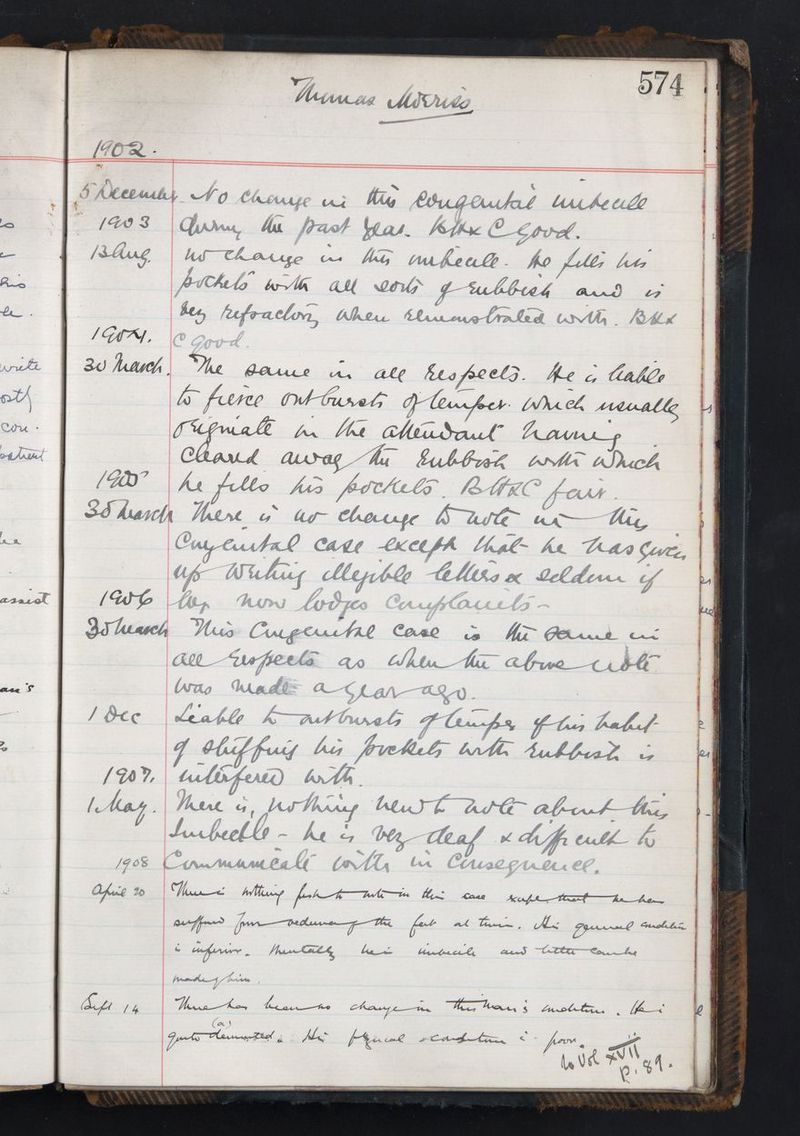 574
Thomas Morriss
1902.
5 December No change in this congenital imbecile
1903 during the past year. BH & C Good.
13 Aug. no change in this imbecile. He fills his
pockets with all sorts of rubbish and is
very refractory when remonstrated with. BH &
1904. C good.
30 March. The same in all respects. He is liable
to fierce outbursts of temper which usually
originate in the attendant having
cleared away the rubbish with which
1905 he fills his pockets. BH & C fair.
30 March There is no change to note in this
Congenital case except that he has given
up writing illegible letters & seldom if
1906 now lodges complaints -
30 March This Congenital case is the same in
all respects as when the above note
was made a year ago.
1 Dec Liable to outbursts of temper if his habit
of stuffing his pockets with rubbish is
1907. interfered with.
1. May. There is, nothing new to note about this
Imbecile - he is very deaf & difficult to
1908 Communicate with in consequence.
April 20 There is nothing fresh to note in this case except that he has
suffered from oedema of the feet at times. His general condition
is inferior. Mentally he is imbecile and little can be
made of him.
Sept 14 There has been no change in this man's condition. He is
quite demented. His physical condition is poor.
to Vol XVII
p. 89.
write
con.
patient
assist